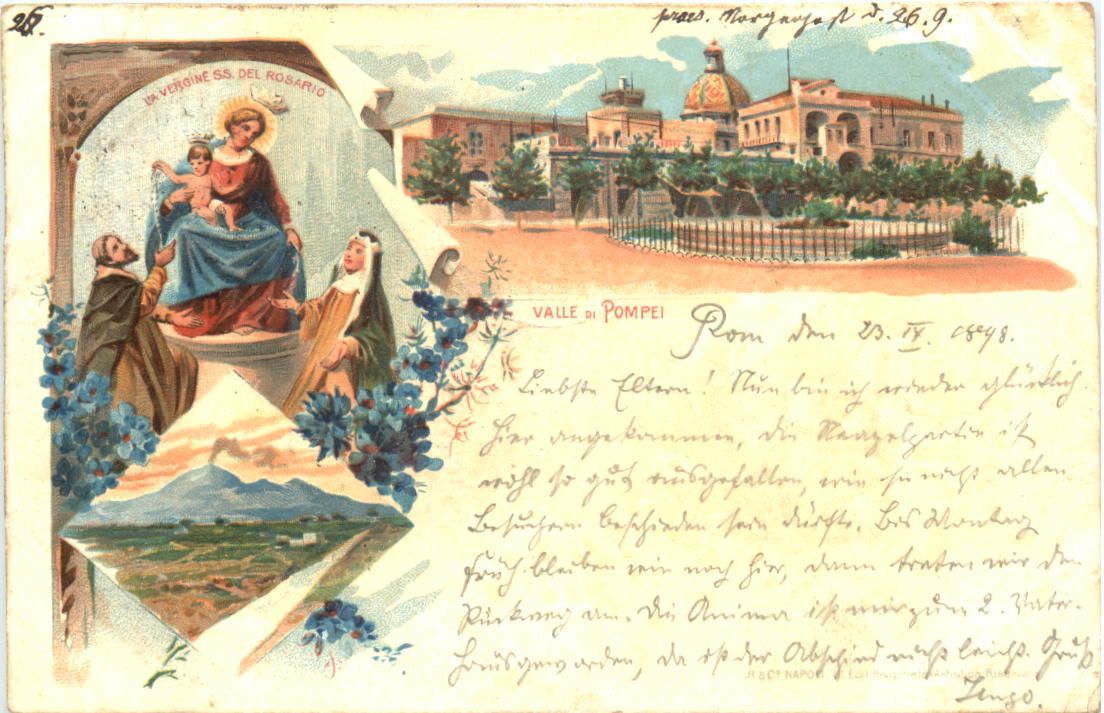 praes. Morgenpost d. 26.9.
LA VERGINE S.S. DEL ROSARIO
VALLE DI POMPEI
Rom den 23. IX. 1898.
Liebste Eltern! Nun bin ich wieder glücklich
hier angekommen, die Neapelpartie ist
wohl so gut ausgefallen, wie sie nicht allen
Besuchern beschieden sein dürfte. Bis Montag
früh bleiben wir noch hier, dann treten wir den
Rückweg an. Die Anima ist mir zum 2. Vater-
haus geworden, da ist der Abschied nicht leicht. Gruß
R & Co. NAPOLI Edit. Proprietà Artistica Riservata